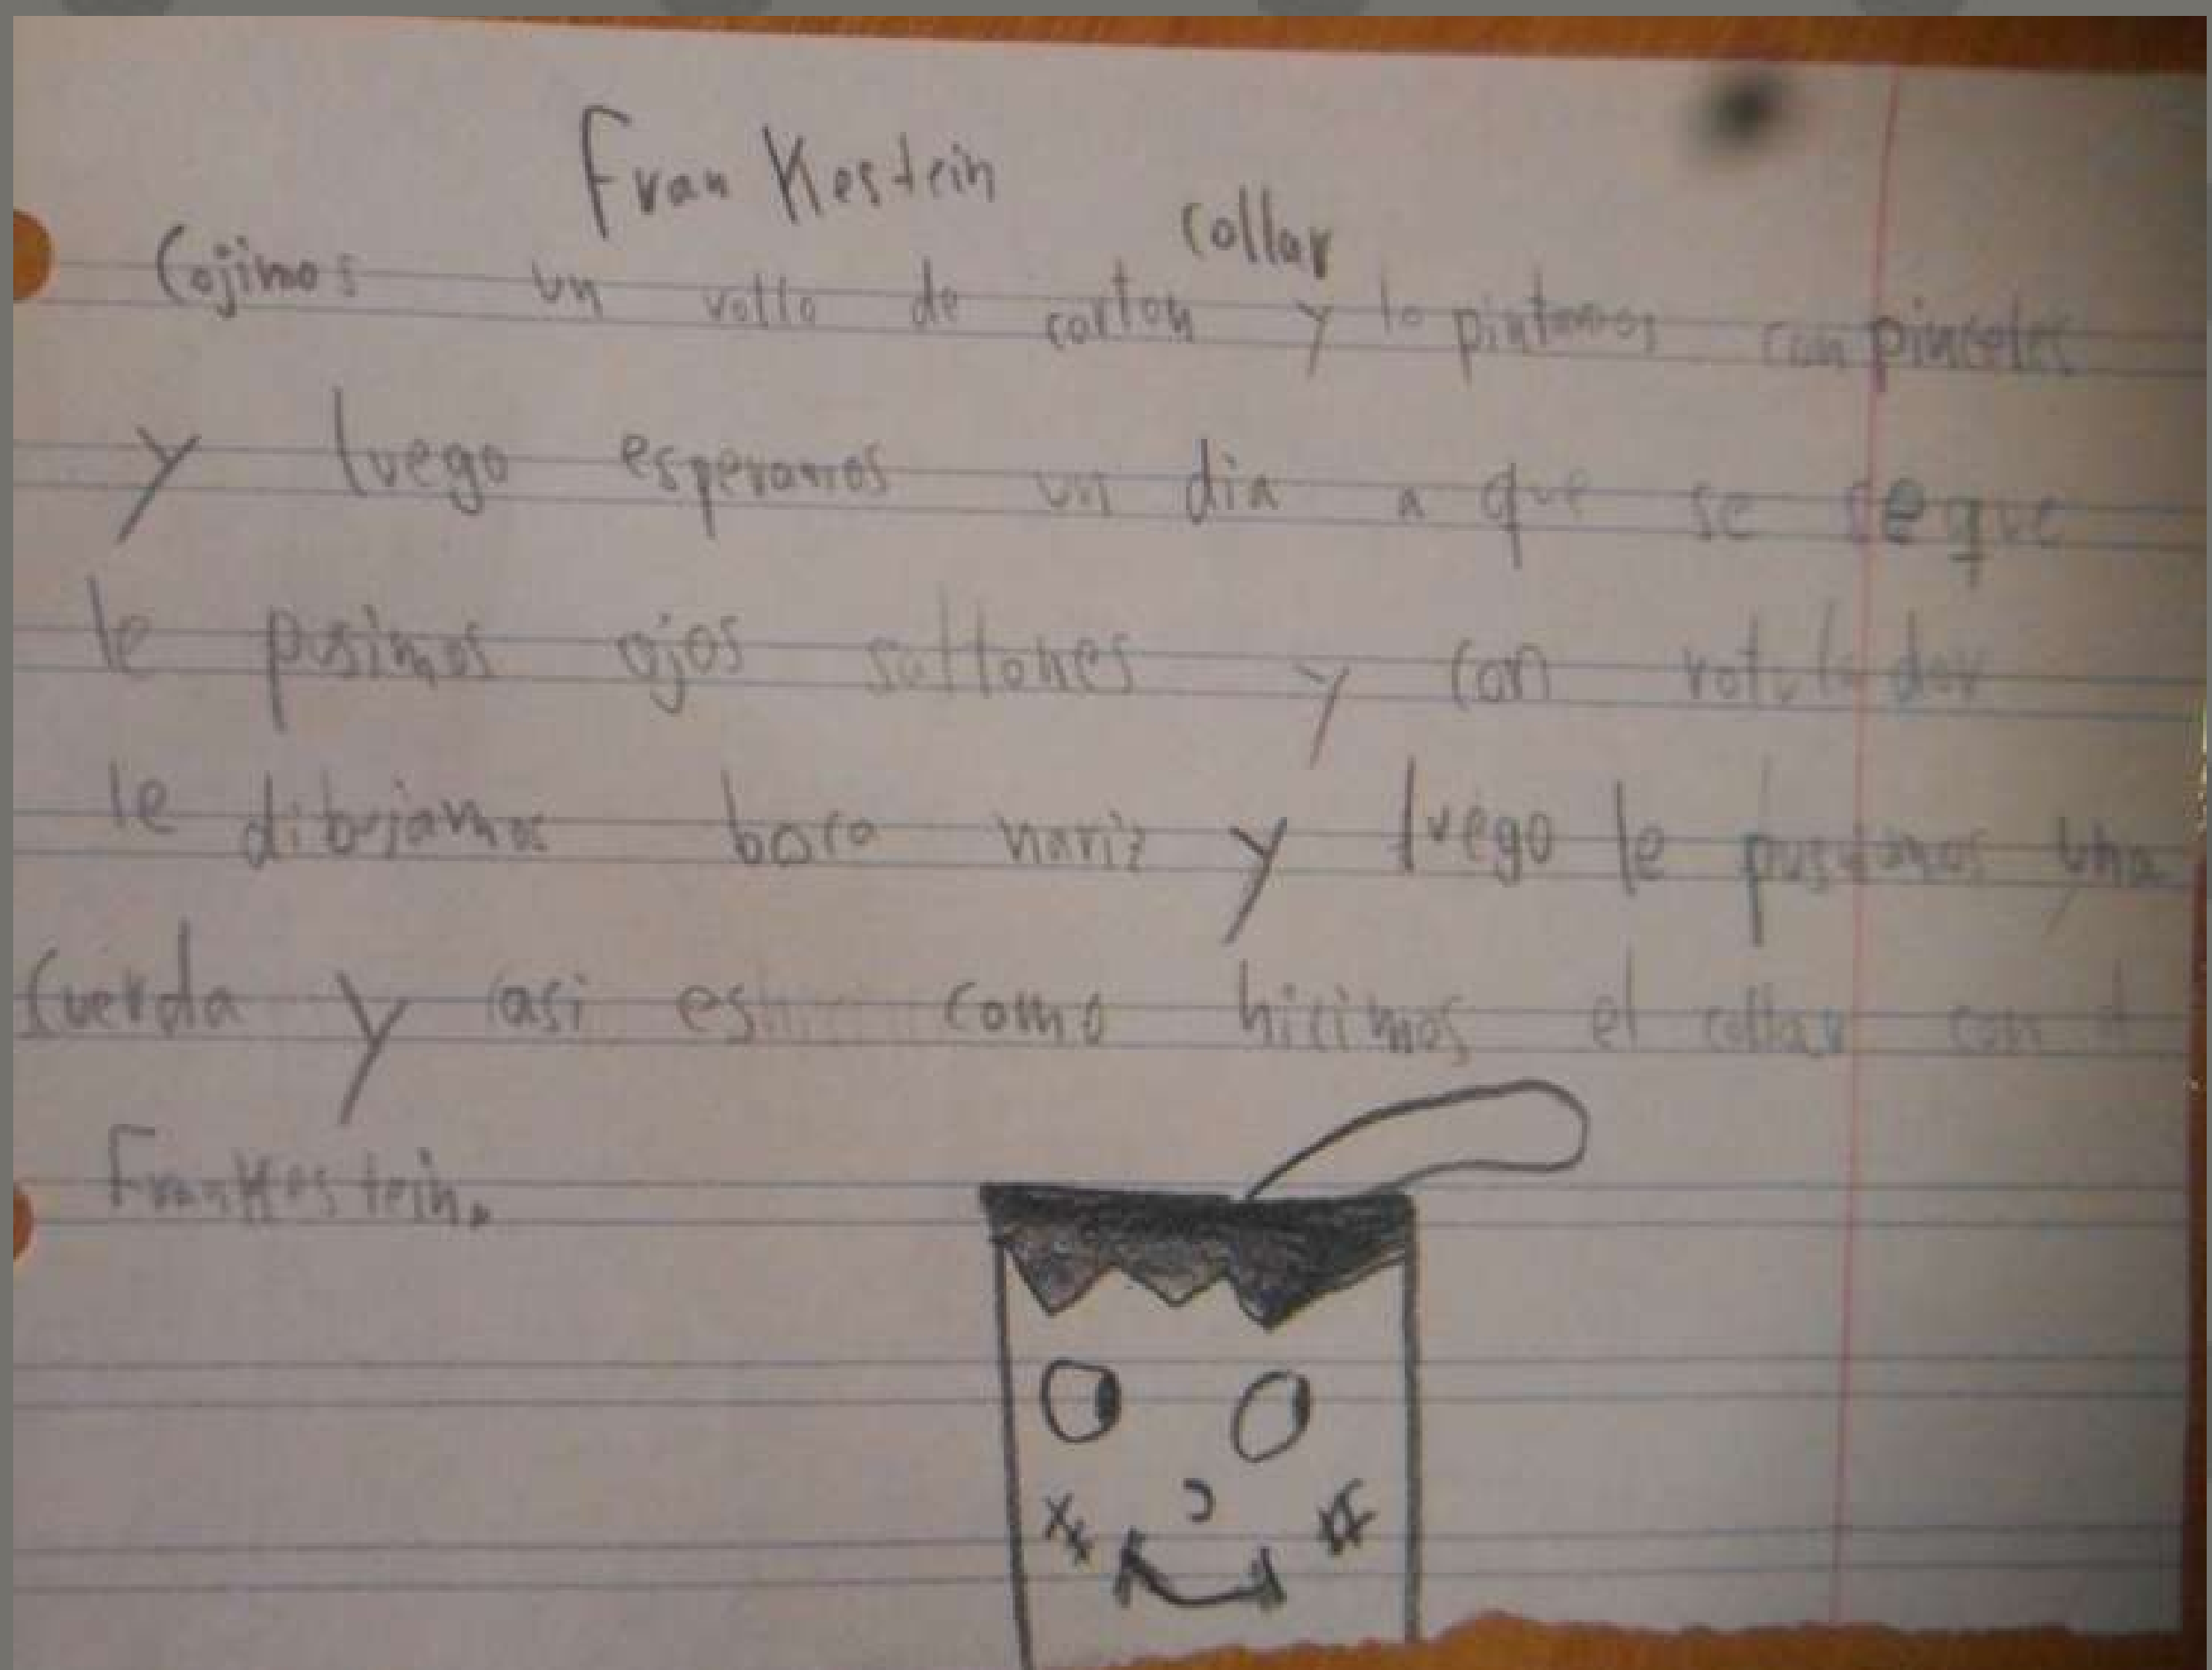 Fran Kestein
collar
Cojimos un rollo de carton y lo pintamos con pinceles
y luego esperamos un dia a que se seque
le pusimos ojos saltones y con rotulador
le dibujamos boca nariz y luego le pusimos una
cuerda y asi es como hicimos el collar con
FranKestein.